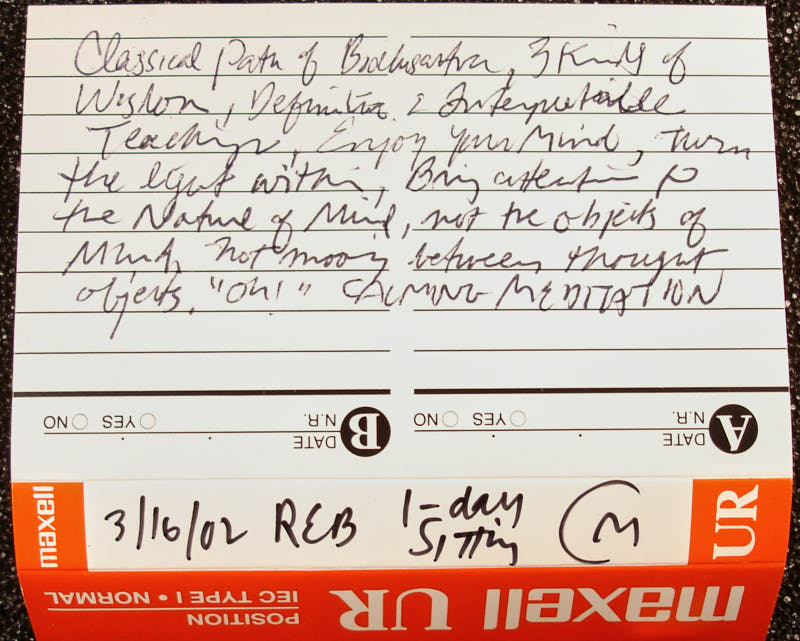 Classical Path of Bodhisattva, 3 Kinds of
Wisdom, Definitive & Interpretable
Teachings, Enjoy Your Mind, Turn
the light within, Bring attention to
the Nature of Mind, not the objects of
Mind, not moving between thought
objects, "Oh!" CALMING MEDITATION
B DATE N.R. YES NO
A DATE N.R. YES NO
maxell 3/16/02 REB 1-day Sitting M UR
maxell UR POSITION IEC TYPE I • NORMAL